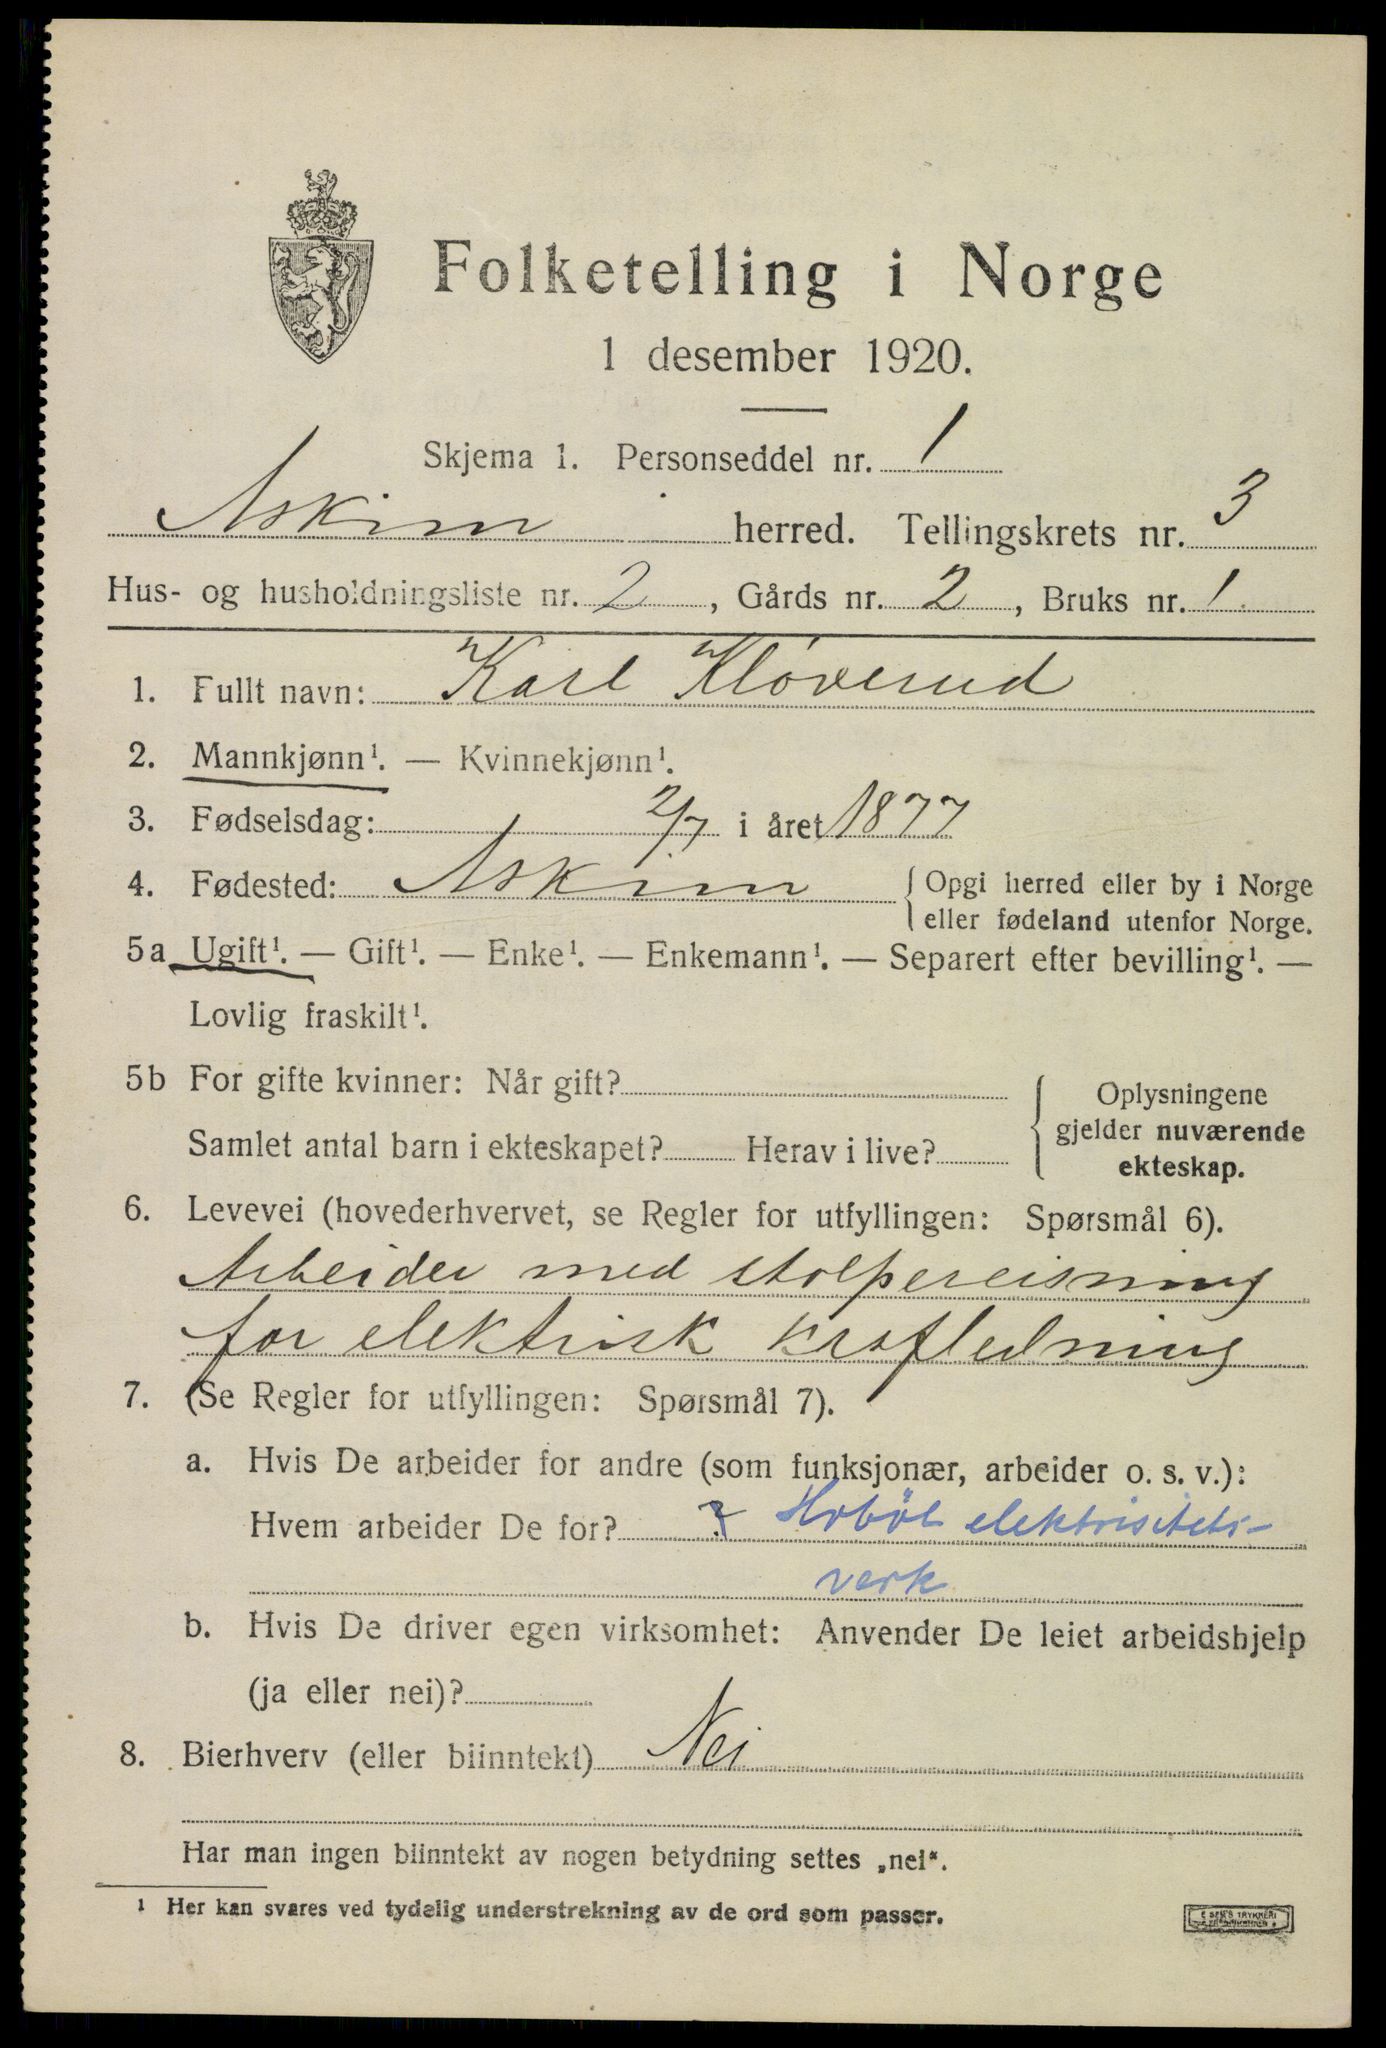 Folketelling i Norge
1 desember 1920.
Skjema 1. Personseddel nr. 1
Askim herred. Tellingskrets nr. 3
Hus- og husholdningsliste nr. 2, Gårds nr. 2, Bruks nr. 1
1. Fullt navn: Karl Kløverud
2. Mannkjønn¹. — Kvinnekjønn¹.
3. Fødselsdag: 2/7 i året 1877
4. Fødested: Askim { Opgi herred eller by i Norge
eller fødeland utenfor Norge.
5a Ugift¹. — Gift¹. — Enke¹. — Enkemann¹. — Separert efter bevilling¹. —
Lovlig fraskilt¹.
5b For gifte kvinner: Når gift?
Samlet antal barn i ekteskapet? Herav i live?
{ Oplysningene
gjelder nuværende
ekteskap.
6. Levevei (hovederhvervet, se Regler for utfyllingen: Spørsmål 6).
Arbeider med stolpereisning
for elektrisk krafledning
7. (Se Regler for utfyllingen: Spørsmål 7).
a. Hvis De arbeider for andre (som funksjonær, arbeider o. s. v.):
Hvem arbeider De for? ? Hobøl elektrisitets-
verk
b. Hvis De driver egen virksomhet: Anvender De leiet arbeidshjelp
(ja eller nei)?
8. Bierhverv (eller biinntekt) Nei
Har man ingen biinntekt av nogen betydning settes „nei“.
¹ Her kan svares ved tydelig understrekning av de ord som passer.